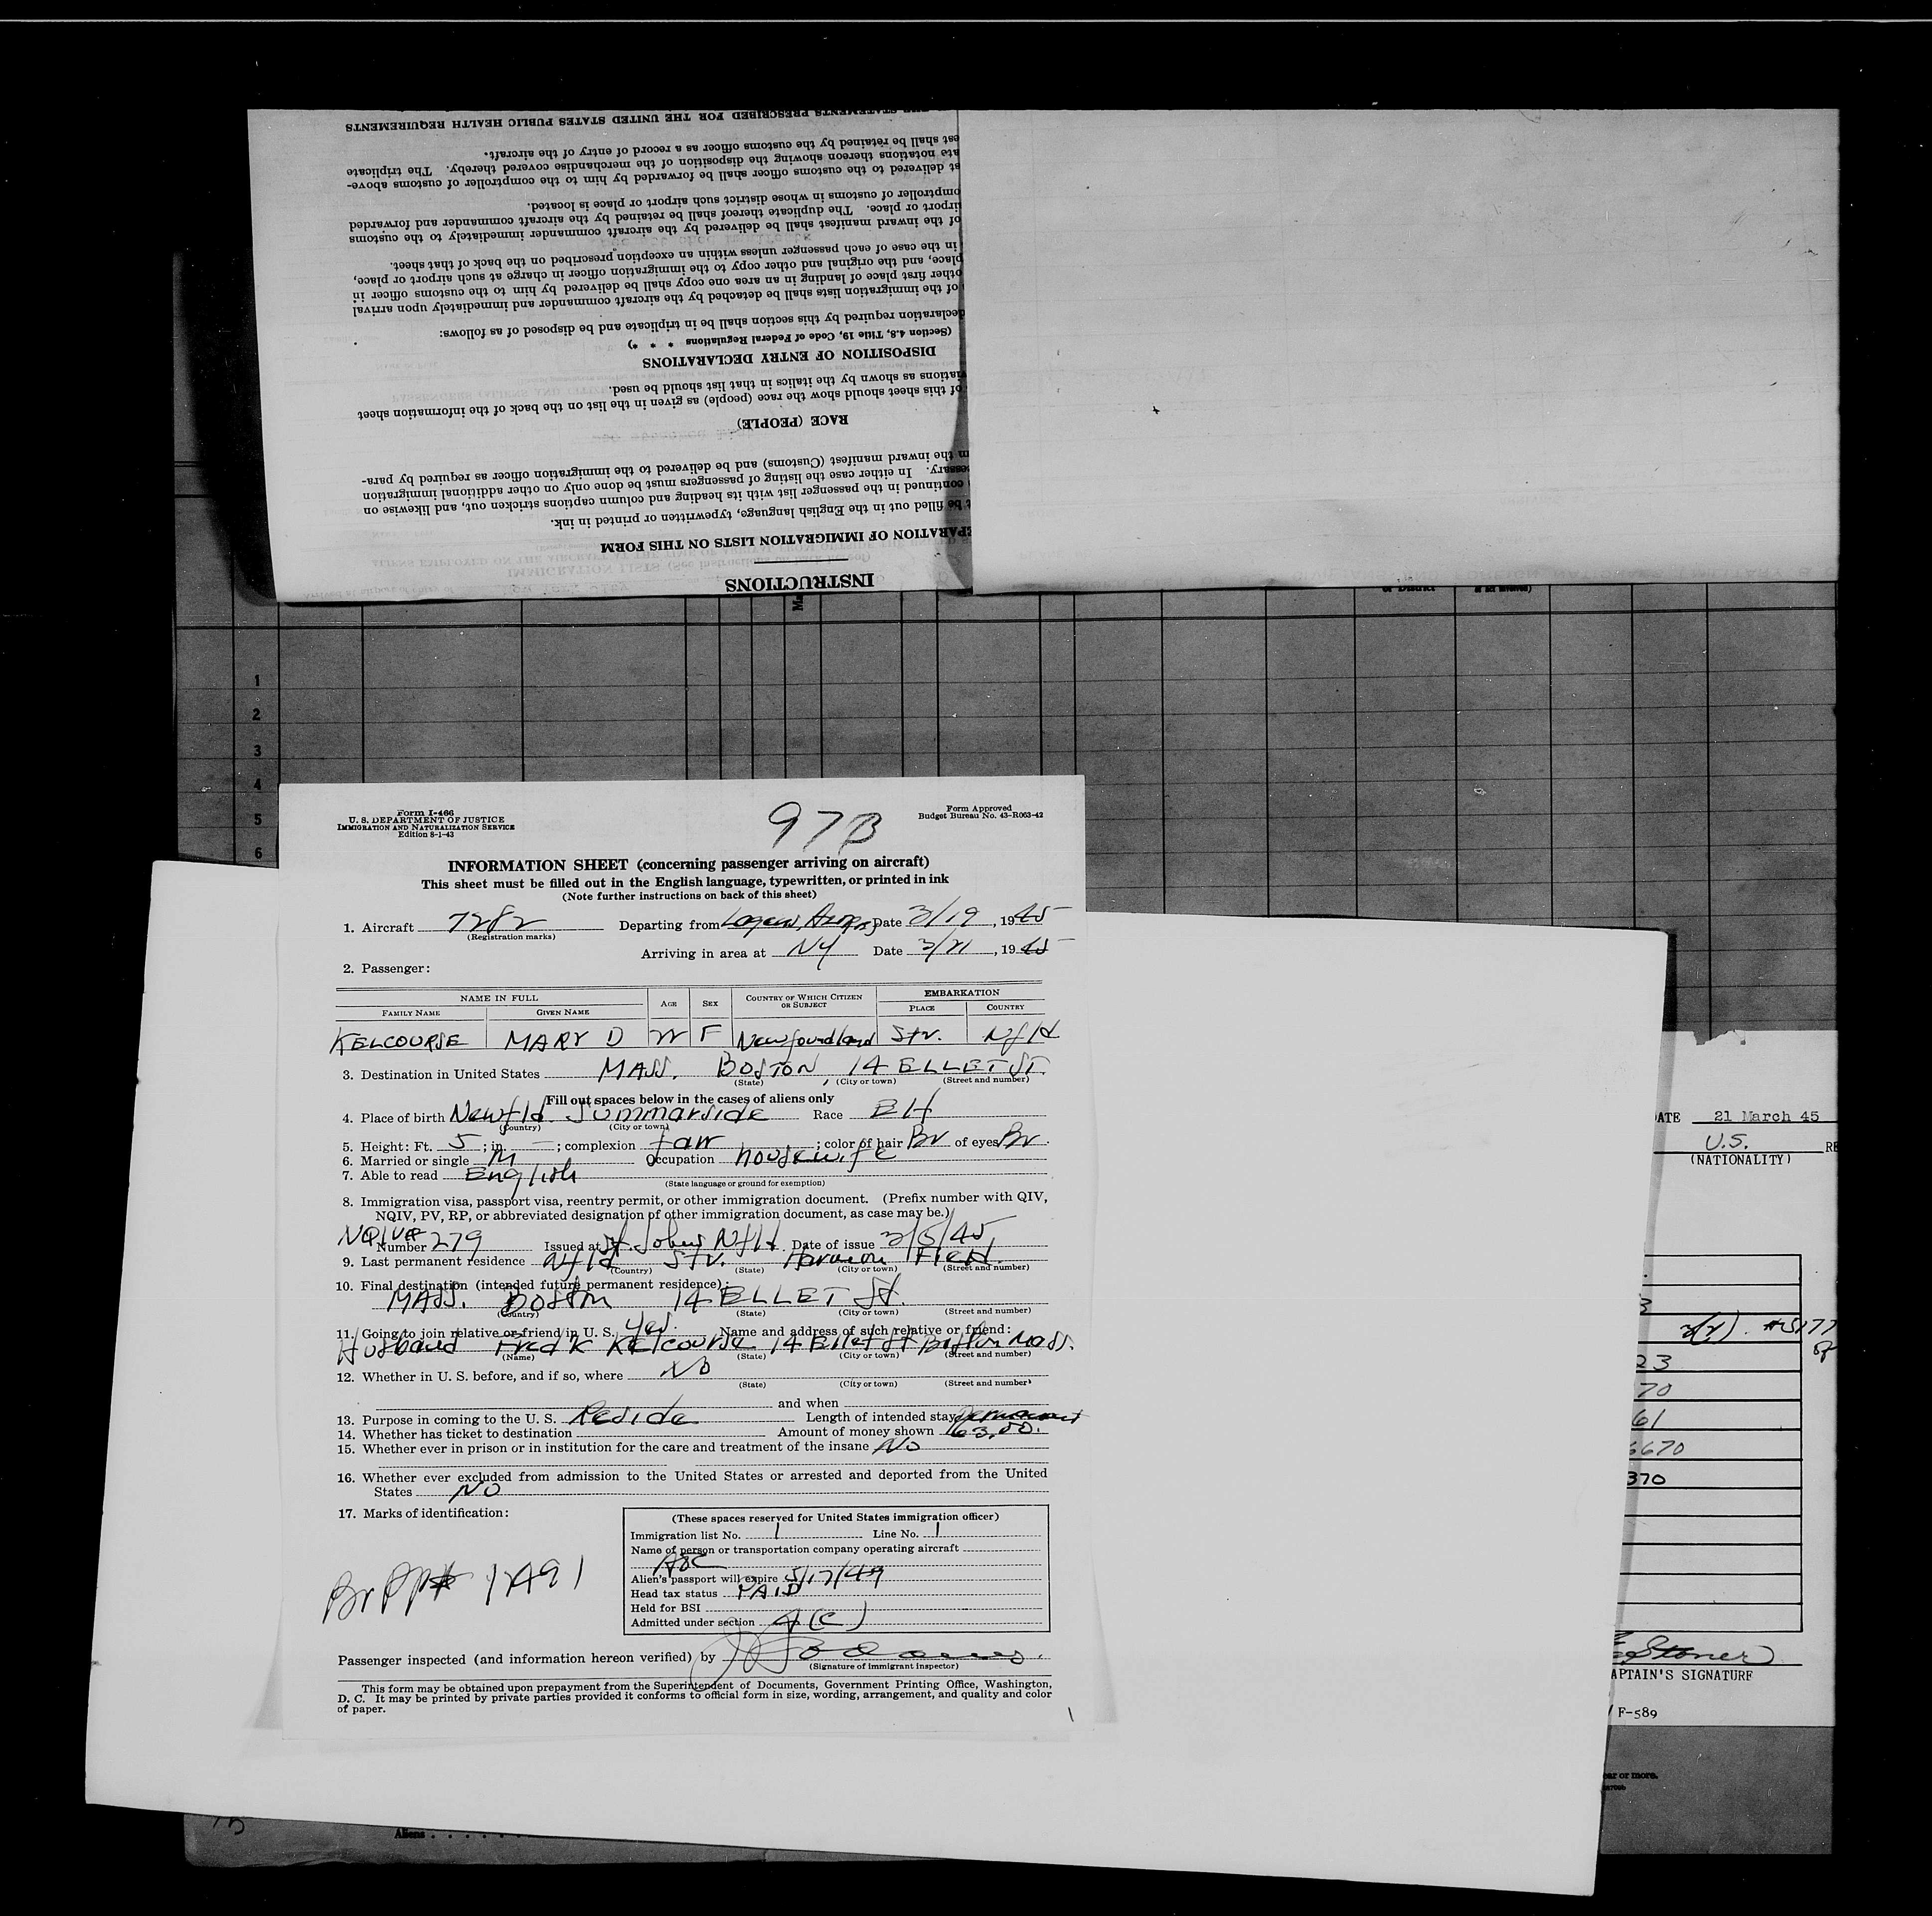 THE STATEMENTS PRESCRIBED FOR THE UNITED STATES PUBLIC HEALTH REQUIREMENTS
est shall be retained by the customs officer as a record of entry of the aircraft.
ate notations thereon showing the disposition of the merchandise covered thereby. The triplicate
at delivered to the customs officer shall be forwarded by him to the comptroller of customs above-
omptroller of customs in whose district such airport or place is located.
airport or place. The duplicate thereof shall be retained by the aircraft commander and forwarded
of the inward manifest shall be delivered by the aircraft commander immediately to the customs
in the case of each passenger unless within an exception prescribed on the back of that sheet.
place, and the original and other copy to the immigration officer in charge at such airport or place,
other first place of landing in an area one copy shall be delivered by him to the customs officer in
of the immigration lists shall be detached by the aircraft commander and immediately upon arrival
declaration required by this section shall be in triplicate and be disposed of as follows:
(Section 4.8, Title 19, Code of Federal Regulations * * *)
DISPOSITION OF ENTRY DECLARATIONS
viations as shown by the italics in that list should be used.
of this sheet should show the race (people) as given in the list on the back of the information sheet
RACE (PEOPLE)
m the inward manifest (Customs) and be delivered to the immigration officer as required by para-
essary. In either case the listing of passengers must be done only on other additional immigration
continued in the passenger list with its heading and column captions stricken out, and likewise on
t be filled out in the English language, typewritten or printed in ink.
EPARATION OF IMMIGRATION LISTS ON THIS FORM
INSTRUCTIONS
or District
1
2
3
4
5
6
Form I-466
U. S. DEPARTMENT OF JUSTICE
IMMIGRATION AND NATURALIZATION SERVICE
Edition 8-1-43
97B
Form Approved
Budget Bureau No. 43-R063-42
INFORMATION SHEET (concerning passenger arriving on aircraft)
This sheet must be filled out in the English language, typewritten, or printed in ink
(Note further instructions on back of this sheet)
1. Aircraft 7282 Departing from Date 3/19, 1945
(Registration marks)
Arriving in area at NY Date 3/21, 1945
2. Passenger:
NAME IN FULL AGE SEX COUNTRY OF WHICH CITIZEN OR SUBJECT EMBARKATION
FAMILY NAME GIVEN NAME PLACE COUNTRY
KELCOURSE MARY D F Newfoundland Stv. Nfld
3. Destination in United States MASS. BOSTON, 14 ELLET ST.
(State) (City or town) (Street and number)
Fill out spaces below in the cases of aliens only
4. Place of birth Newfld. Summarside Race
(Country) (City or town)
5. Height: Ft. 5; in. —; complexion fair; color of hair Br of eyes Br.
6. Married or single M Occupation housewife
7. Able to read English
(State language or ground for exemption)
8. Immigration visa, passport visa, reentry permit, or other immigration document. (Prefix number with QIV,
NQIV, PV, RP, or abbreviated designation of other immigration document, as case may be.)
NQIV#
Number 279 Issued at St Johns Nfld. Date of issue 3/5/45
9. Last permanent residence Nfld Stv. Harmon Field.
(Country) (State) (City or town) (Street and number)
10. Final destination (intended future permanent residence):
MASS. Boston 14 ELLET St.
(Country) (State) (City or town) (Street and number)
11. Going to join relative or friend in U. S. yes. Name and address of such relative or friend:
Husband Fred K Kelcourse 14 Ellet St Boston Mass.
(Name) (State) (City or town) (Street and number)
12. Whether in U. S. before, and if so, where NO
(State) (City or town) (Street and number)
and when
13. Purpose in coming to the U. S. Reside Length of intended stay Permanent
14. Whether has ticket to destination Amount of money shown 163.00.
15. Whether ever in prison or in institution for the care and treatment of the insane No
16. Whether ever excluded from admission to the United States or arrested and deported from the United
States NO
17. Marks of identification:
(These spaces reserved for United States immigration officer)
Immigration list No. 1 Line No. 1
Name of person or transportation company operating aircraft
Alien's passport will expire 5/17/49
Head tax status PAID
Held for BSI
Admitted under section 4(C)
Passenger inspected (and information hereon verified) by
(Signature of immigrant inspector)
This form may be obtained upon prepayment from the Superintendent of Documents, Government Printing Office, Washington,
D. C. It may be printed by private parties provided it conforms to official form in size, wording, arrangement, and quality and color
of paper.
DATE 21 March 45
U.S.
(NATIONALITY)
#5177
23
70
61
6670
370
Stoner
CAPTAIN'S SIGNATURE
F-589
ear or more.
Aliens